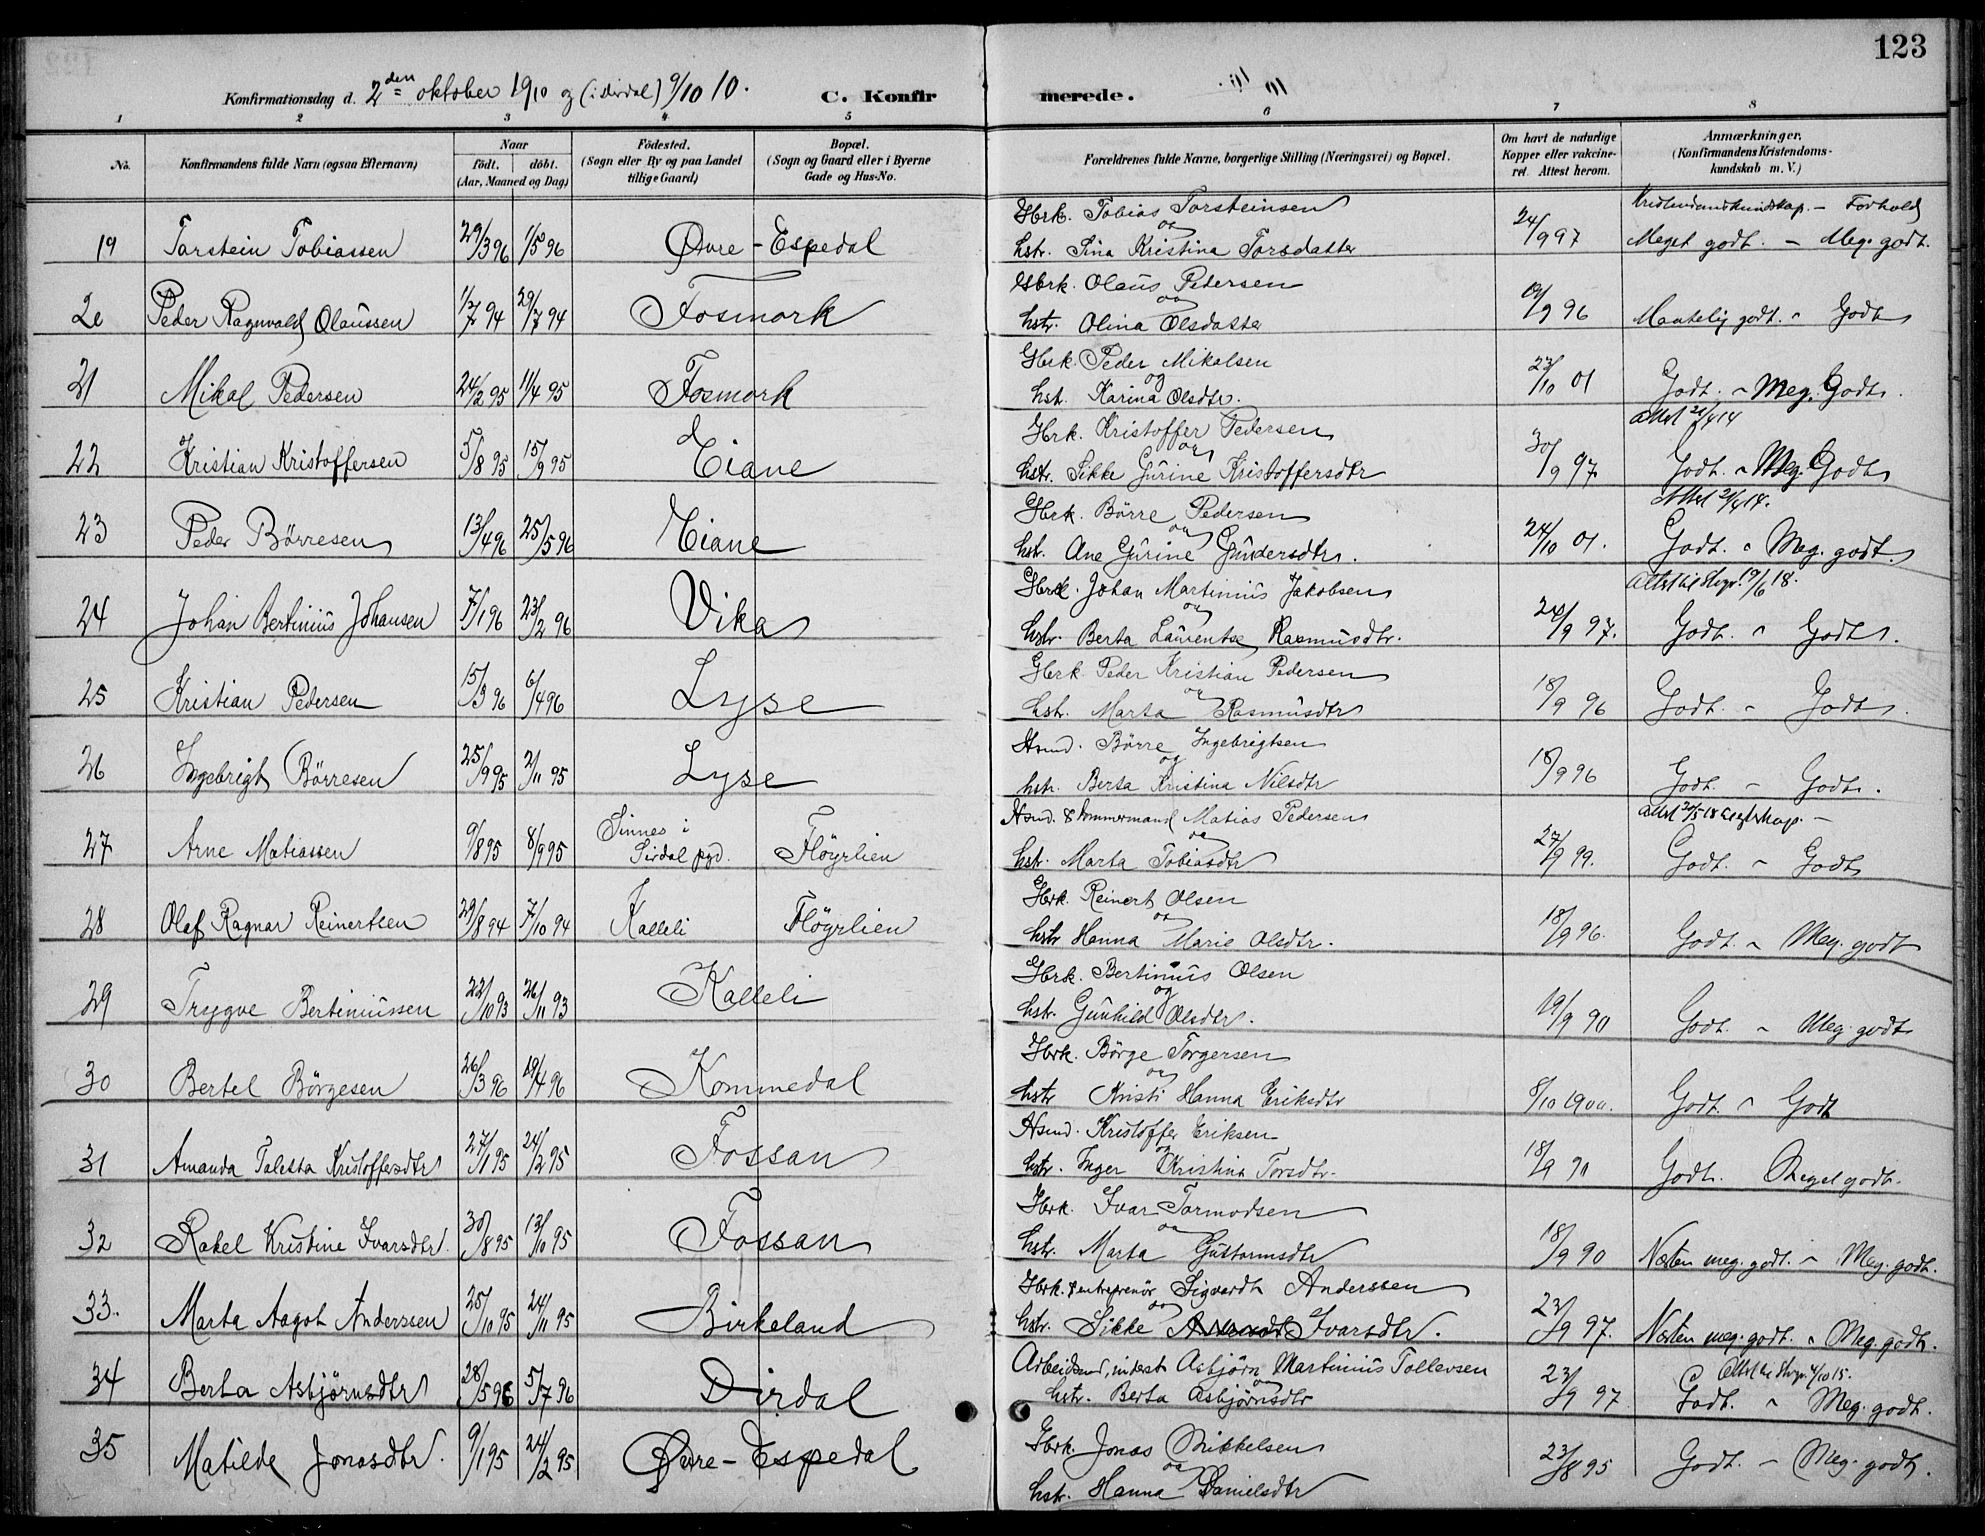 123
Konfirmationsdag d. 2den oktober 1910 og (i Dirdal) 9/10 10. C. Konfirmerede.
1 2 3 4 5 6 7 8
No. Konfirmandens fulde Navn (ogsaa Efternavn) Naar født. døbt. (Aar, Maaned og Dag) Fødested. (Sogn eller By og paa Landet tillige Gaard) Bopæl. (Sogn og Gaard eller i Byerne Gade og Hus-No. Forældrenes fulde Navne, borgerlige Stilling (Næringsvei) og Bopæl. Om havt de naturlige Kopper eller vakcineret. Attest herom. Anmærkninger. (Konfirmandens Kristendomskundskab m. V.)
Kristendomskundskap. – Forhold
Gbrk. Tobias Torsteinsen
og
19 Torstein Tobiassen 29/3 96 1/5 96 Øvre-Espedal hstr. Sina Kristina Torsdatter 24/9 97 Meget godt. – Meg. godt.
Gbrk. Olaus Pedersen
og
20 Peder Ragnvald Olaussen 1/7 94 29/7 94 Fosmork hstr. Olina Olsdatter 19/9 96 Godt
Gbrk. Peder Mikalsen
og
21 Mikal Pedersen 24/2 95 11/4 95 Fosmork hst. Karina Olsdtr. 23/10 01 Godt. – Meg. Godt.
Gbrk. Kristoffer Pedersen
og
22 Kristian Kristoffersen 5/8 95 15/9 95 Eiane hstr. Sikke Gurine Kristoffersdtr 30/9 97 Godt. – Meg. Godt
Gbrk. Børre Pedersen
og
23 Peder Børresen 13/4 96 25/5 96 Eiane hst. Ane Gurine Gundersdtr. 24/10 01. Godt. – Meg. godt
Gbrk. Johan Martinius Jakobsen
og
24 Johan Bertinius Johansen 7/1 96 23/2 96 Vika hstr. Berta Laurentse Rasmusdtr. 24/9 97. Godt. – Godt.
Gbrk. Peder Kristian Pedersen
og
25 Kristian Pedersen 15/3 96 6/4 96 Lyse hstr. Marta Rasmusdtr 18/9 96 Godt. – Godt.
Børre Ingebrigtsen
og
26 Ingebrigt Børresen 25/9 95 2/11 95 Lyse hstr. Berta Kristina Nilsdtr 18/9 96 Godt. – Godt.
& tømmermand Matias Pedersen
og
27 Arne Matiassen 9/8 95 8/9 95 Sinnes i Sirdal pgd. Fløyrlien hstr. Marta Tobiasdtr 27/9 99. Godt. – Godt
Gbrk. Reinert Olsen
og
28 Olaf Ragnar Reinertsen 29/8 94 7/10 94 Kalleli Fløyrlien hstr Hanna Marie Olsdtr. 18/9 96. Godt. – Meg. godt
Gbrk. Bertinius Olsen
og
29 Trygve Bertiniussen 22/10 93 26/11 93 Kalleli hstr. Gunhild Olsdtr. 19/9 90 Godt. – Meg. godt
Gbrk. Børge Torgersen
og
30 Bertel Børgesen 26/3 96 19/4 96 Kommedal hstr Kristi Hanna Eriksdtr 8/10 1900. Godt. – Godt
Kristoffer Eriksen
og
31 Amanda Talesta Kristoffersdtr 27/1 95 24/2 95 Fossan hstr. Inger Kristina Torsdtr. 18/9 90 Godt. Meget godt.
Gbrk. Ivar Tormodsen
og
32 Rakel Kristine Ivarsdtr. 30/8 95 13/10 95 Fossan hstr. Marta Guttormsdtr 18/9 90 Næsten meg. godt. – Meg. godt.
Gbrk. & entreprenør Sigvardt Anderssen
og
33. Marta Aagot Anderssen 25/10 95 24/11 95 Birkeland hstr. Sikke Ivarsdtr. 23/9 97. Næsten meg. godt. – Meg. godt.
Asbjørn Martinius Tollevsen
og
34 Berta Asbjørnsdtr 28/5 96 5/7 96 Dirdal hstr. Berta Asbjørnsdtr 23/9 97 Godt. – Meg. godt.
Gbrk. Jonas Mikkelsen
og
35 Matilde Jonasdtr. 9/1 95 24/2 95 Øvre-Espedal hstr. Hanna Danielsdtr 23/8 95 Godt. – Meg. godt.